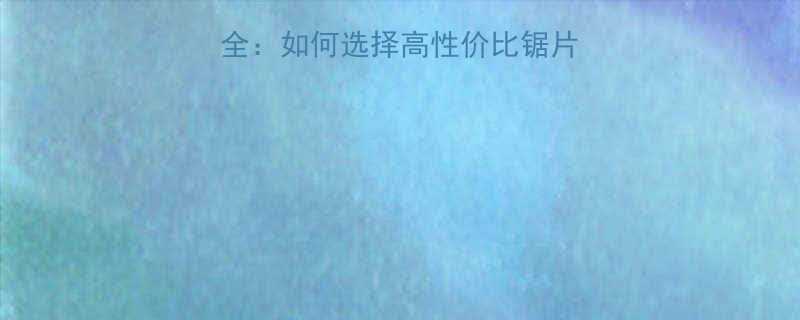 全：如何选择高性价比锯片